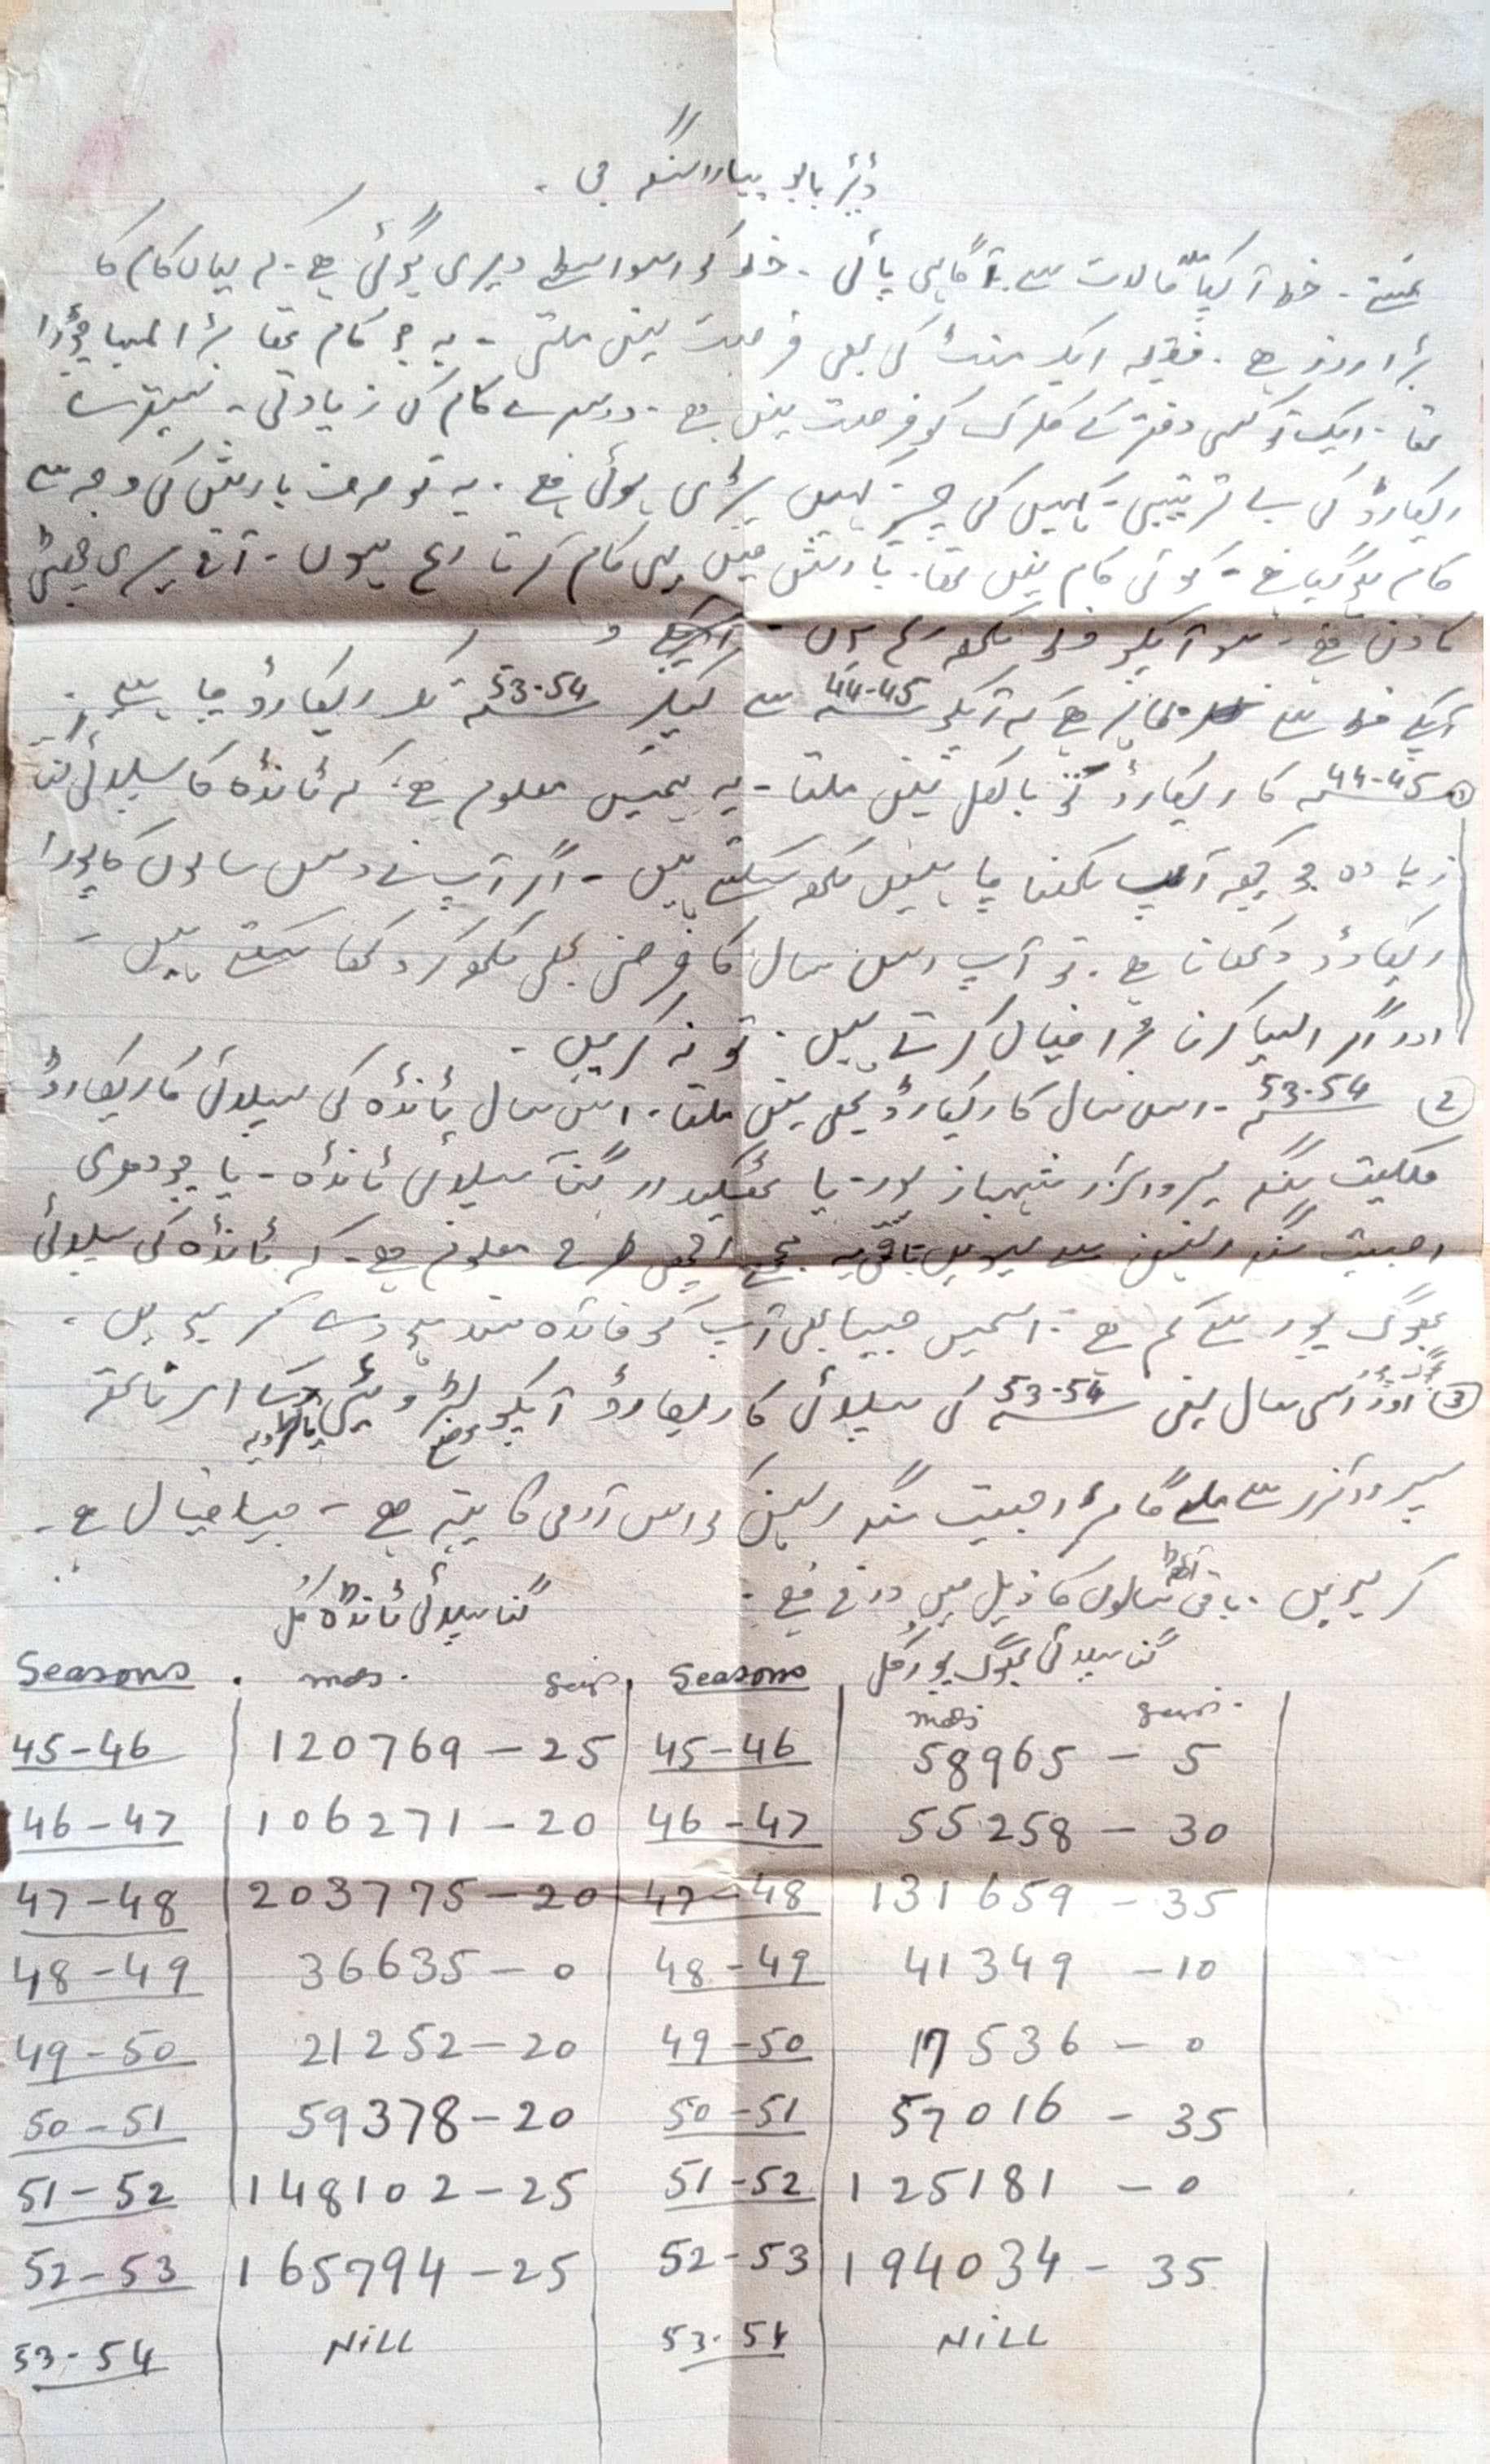 ڈیئر بابو پیارا سنگھ جی ۔
نمستے ۔ خط آپکا ملا حالات سے آگاہی پائی ۔ خط کو اسواسطے دیری ہوگئی ہے ۔ کہ یہاں کام کا
بڑا زور ہے ۔ ایک منٹ کی بھی فرصت نہیں ملتی ۔ یہ جو کام تھا بڑا لمبا چوڑا
تھا ۔ ایک تو کسی دفتر کے کلرک کو فرصت نہیں ہے ۔ دوسرے کام کی زیادتی ۔ تیسرے
ریکارڈ کی بے ترتیبی ۔ کہیں کی چیز کہیں پڑی ہوئی ہے ۔ یہ تو صرف بارش کی وجہ سے
کام ہوگیا ہے ۔ کوئی کام نہیں تھا ۔ بارش میں ہی کام کرتا رہا ہوں ۔ آج میری چھٹی
کا دن ہے ۔ سو آپکو خط لکھ رہا ہوں ۔
آپکے خط سے ظاہر ہے کہ آپکو 44-45 سے لیکر 53-54 تک ریکارڈ چاہیئے ۔
① 44-45 کا ریکارڈ تو بالکل نہیں ملتا ۔ یہ ہمیں معلوم ہے ۔ کہ ٹانڈہ کا سپلائی گنا
زیادہ جو کچھ آپ لکھنا چاہیں لکھ سکتے ہیں ۔ اگر آپ نے دس سالوں کا پورا
ریکارڈ دکھانا ہے ۔ تو آپ اس سال کا فرضی بھی لکھ کر دکھا سکتے ہیں ۔
اور اگر ایسا کرنا برا خیال کرتے ہیں ۔ تو نہ کریں ۔
② 53-54 ۔ اس سال کا ریکارڈ بھی نہیں ملتا ۔ اس سال ٹانڈہ کی سپلائی کا ریکارڈ
ملکیت سنگھ سپروائزر شہباز پور ۔ یا ٹھیکیدار گنا سپلائی ٹانڈہ ۔ یا چودھری
اجیت سنگھ سے لیویں باقی یہ مجھے اچھی طرح معلوم ہے ۔ کہ ٹانڈہ کی سپلائی
بھوگ پور سے کم ہے ۔ اسمیں جیسا بھی آپ کو فائدہ مند ہو وے کر لیویں ۔
③ اور اسی سال یعنی 53-54 کی سپلائی کا ریکارڈ آپکو
سپروائزر سے ملے گا اجیت سنگھ کو اس آدمی کا پتہ ہے ۔ جیسا خیال ہے ۔
کر لیویں ۔ باقی آٹھ سالوں کا ذیل میں درج ہے ۔
گنا سپلائی ٹانڈہ کل
گنا سپلائی بھوگ پور کل
Seasons . mds. seers Seasons mds seers.
45-46 120769 - 25 45-46 58965 - 5
46-47 106271 - 20 46-47 55258 - 30
47-48 203775 - 20 47-48 131659 - 35
48-49 36635 - 0 48-49 41349 - 10
49-50 21252 - 20 49-50 17536 - 0
50-51 59378 - 20 50-51 57016 - 35
51-52 148102 - 25 51-52 125181 - 0
52-53 165794 - 25 52-53 194034 - 35
53-54 Nill 53-54 Nill